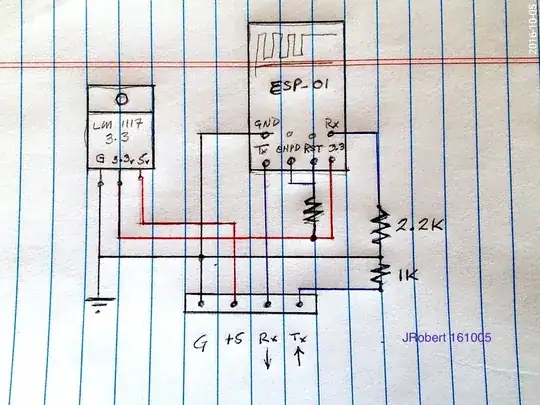 2016-10-05
ESP-01
LM 1117
3.3
G 3.3v 5v
GND Rx
Tx CHPD RST 3.3
2.2K
1K
G +5 Rx Tx
JRobert 161005